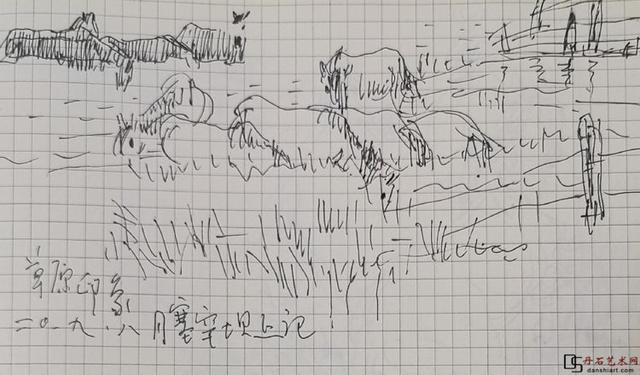 草原印象
二〇一九.八月塞罕坝上记
丹石艺术网
danshiart.com